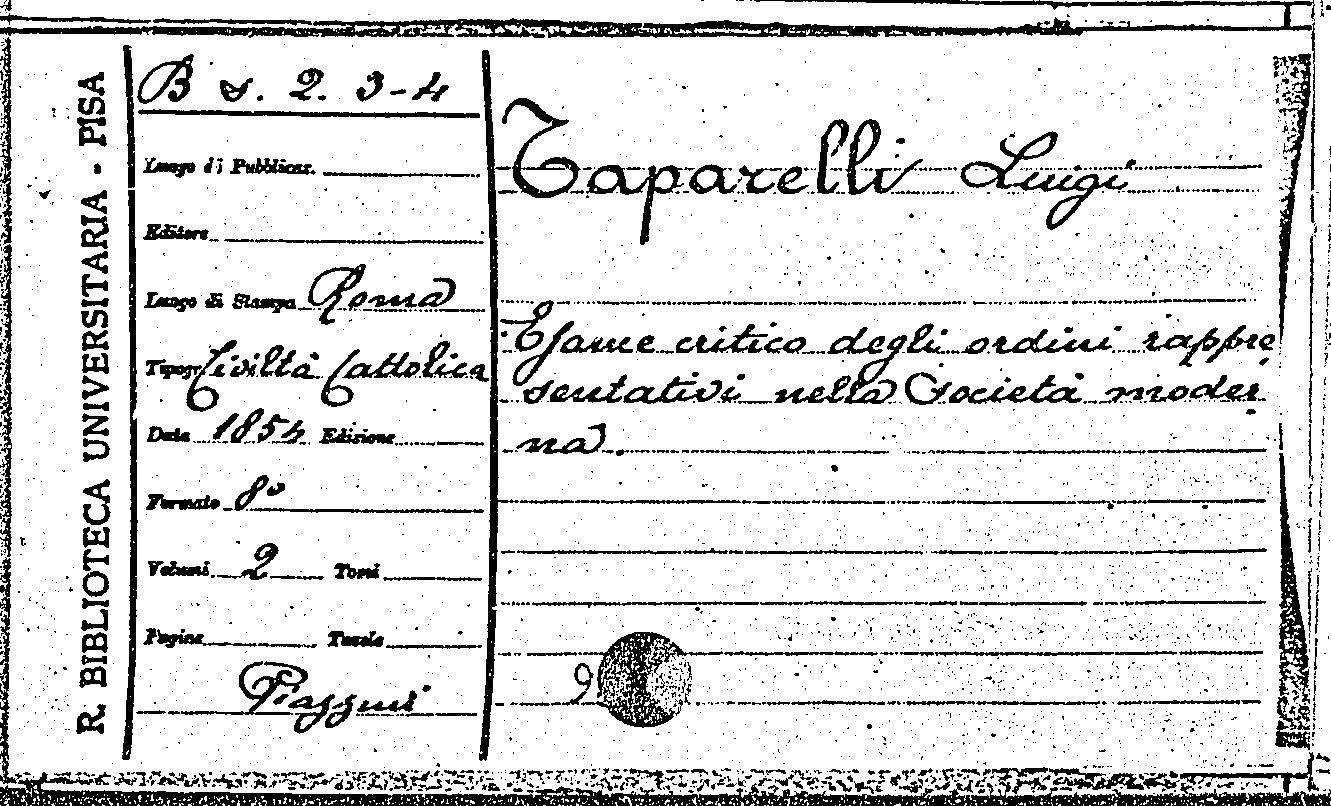 R. BIBLIOTECA UNIVERSITARIA - PISA
B s. 2. 3-4
Luogo di Pubblicaz.
Editore
Luogo di Stampa Roma
Tipogr. Civiltà Cattolica
Data 1854 Edizione
Formato 8°
Volumi 2 Tomi
Pagine Tavole
Taparelli Luigi
Esame critico degli ordini rappre
sentativi nella Società moder
na.